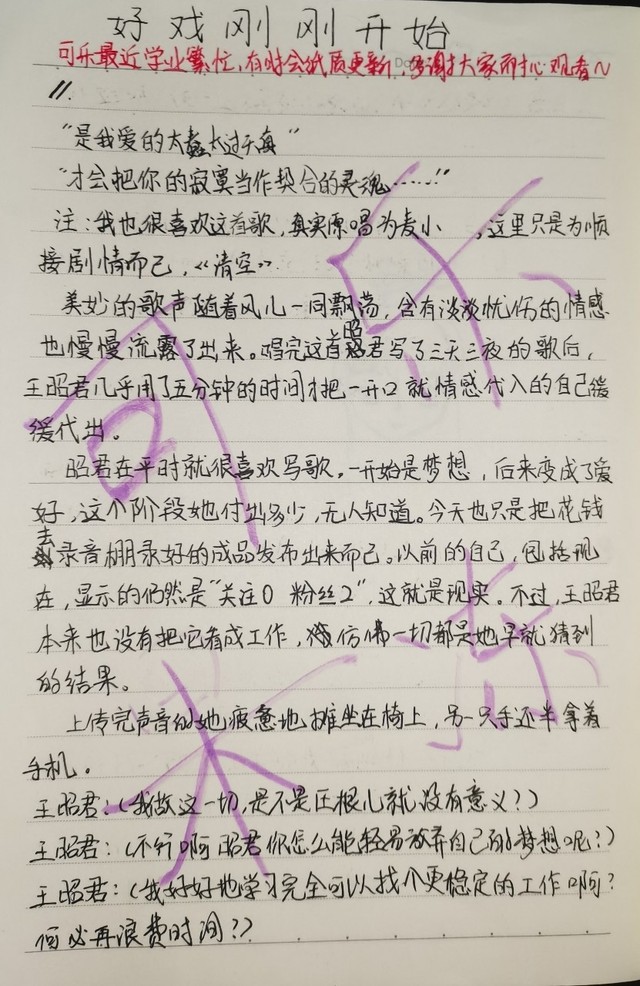 好戏刚刚开始
可乐最近学业繁忙,有时会纸质更新,多谢大家耐心观看~
11.
"是我爱的太蠢太过天真"
"才会把你的寂寞当作契合的灵魂……"
注:我也很喜欢这首歌,真实原唱为麦小 ,这里只是为顺
接剧情而已,《清空》.
美妙的歌声随着风儿一同飘荡,含有淡淡忧伤的情感
也慢慢流露了出来。唱完这首昭君写了三天三夜的歌后,
王昭君几乎用了五分钟的时间才把一开口就情感代入的自己缓
缓代出。
昭君在平时就很喜欢写歌。一开始是梦想,后来变成了爱
好,这个阶段她付出多少,无人知道。今天也只是把花钱
去录音棚录好的成品发布出来而已。以前的自己,包括现
在,显示的仍然是"关注0 粉丝2",这就是现实。不过,王昭君
本来也没有把它看成工作,仿佛一切都是她早就猜到
的结果。
上传完声音的她疲惫地摊坐在椅上,另一只手还半拿着
手机。
王昭君:(我做这一切,是不是压根儿就没有意义?)
王昭君:(不行啊昭君你怎么能轻易放弃自己的梦想呢?)
王昭君:(我好好地学习完全可以找个更稳定的工作啊?
何必再浪费时间?)
可乐